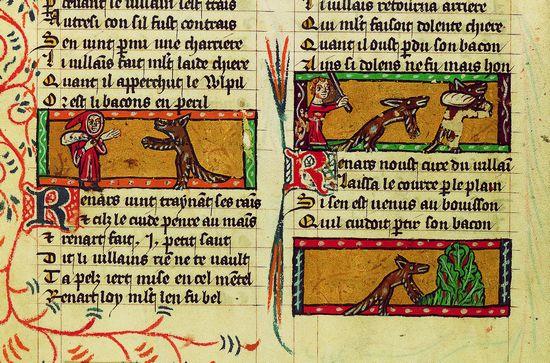 Prenant le uillain lest trais
Autresi con sil fust contrais
Sen uint parmi une charriere
Li uillains fait mlt laide chiere
Quant il apperchut le Wlpil
Or est li bacons en peril
Renars uint traynant ses rais
Et cil le cuide penre au mais
Et renart fait .I. petit saut
Dit li uillains rien ne te uault
Ta pelz iert mise en cel mentel
Renart loy mlt len fu bel
Li uillais retourna arriere
Qui mlt faisoit dolente chiere
Quant il oust pdu son bacon
Ains si dolens ne fu mais hon
Renars noust cure du uillain
Laissa le courre p le plain
Si sen est uenus au bouisson
Quil cuidoit ptir son bacon